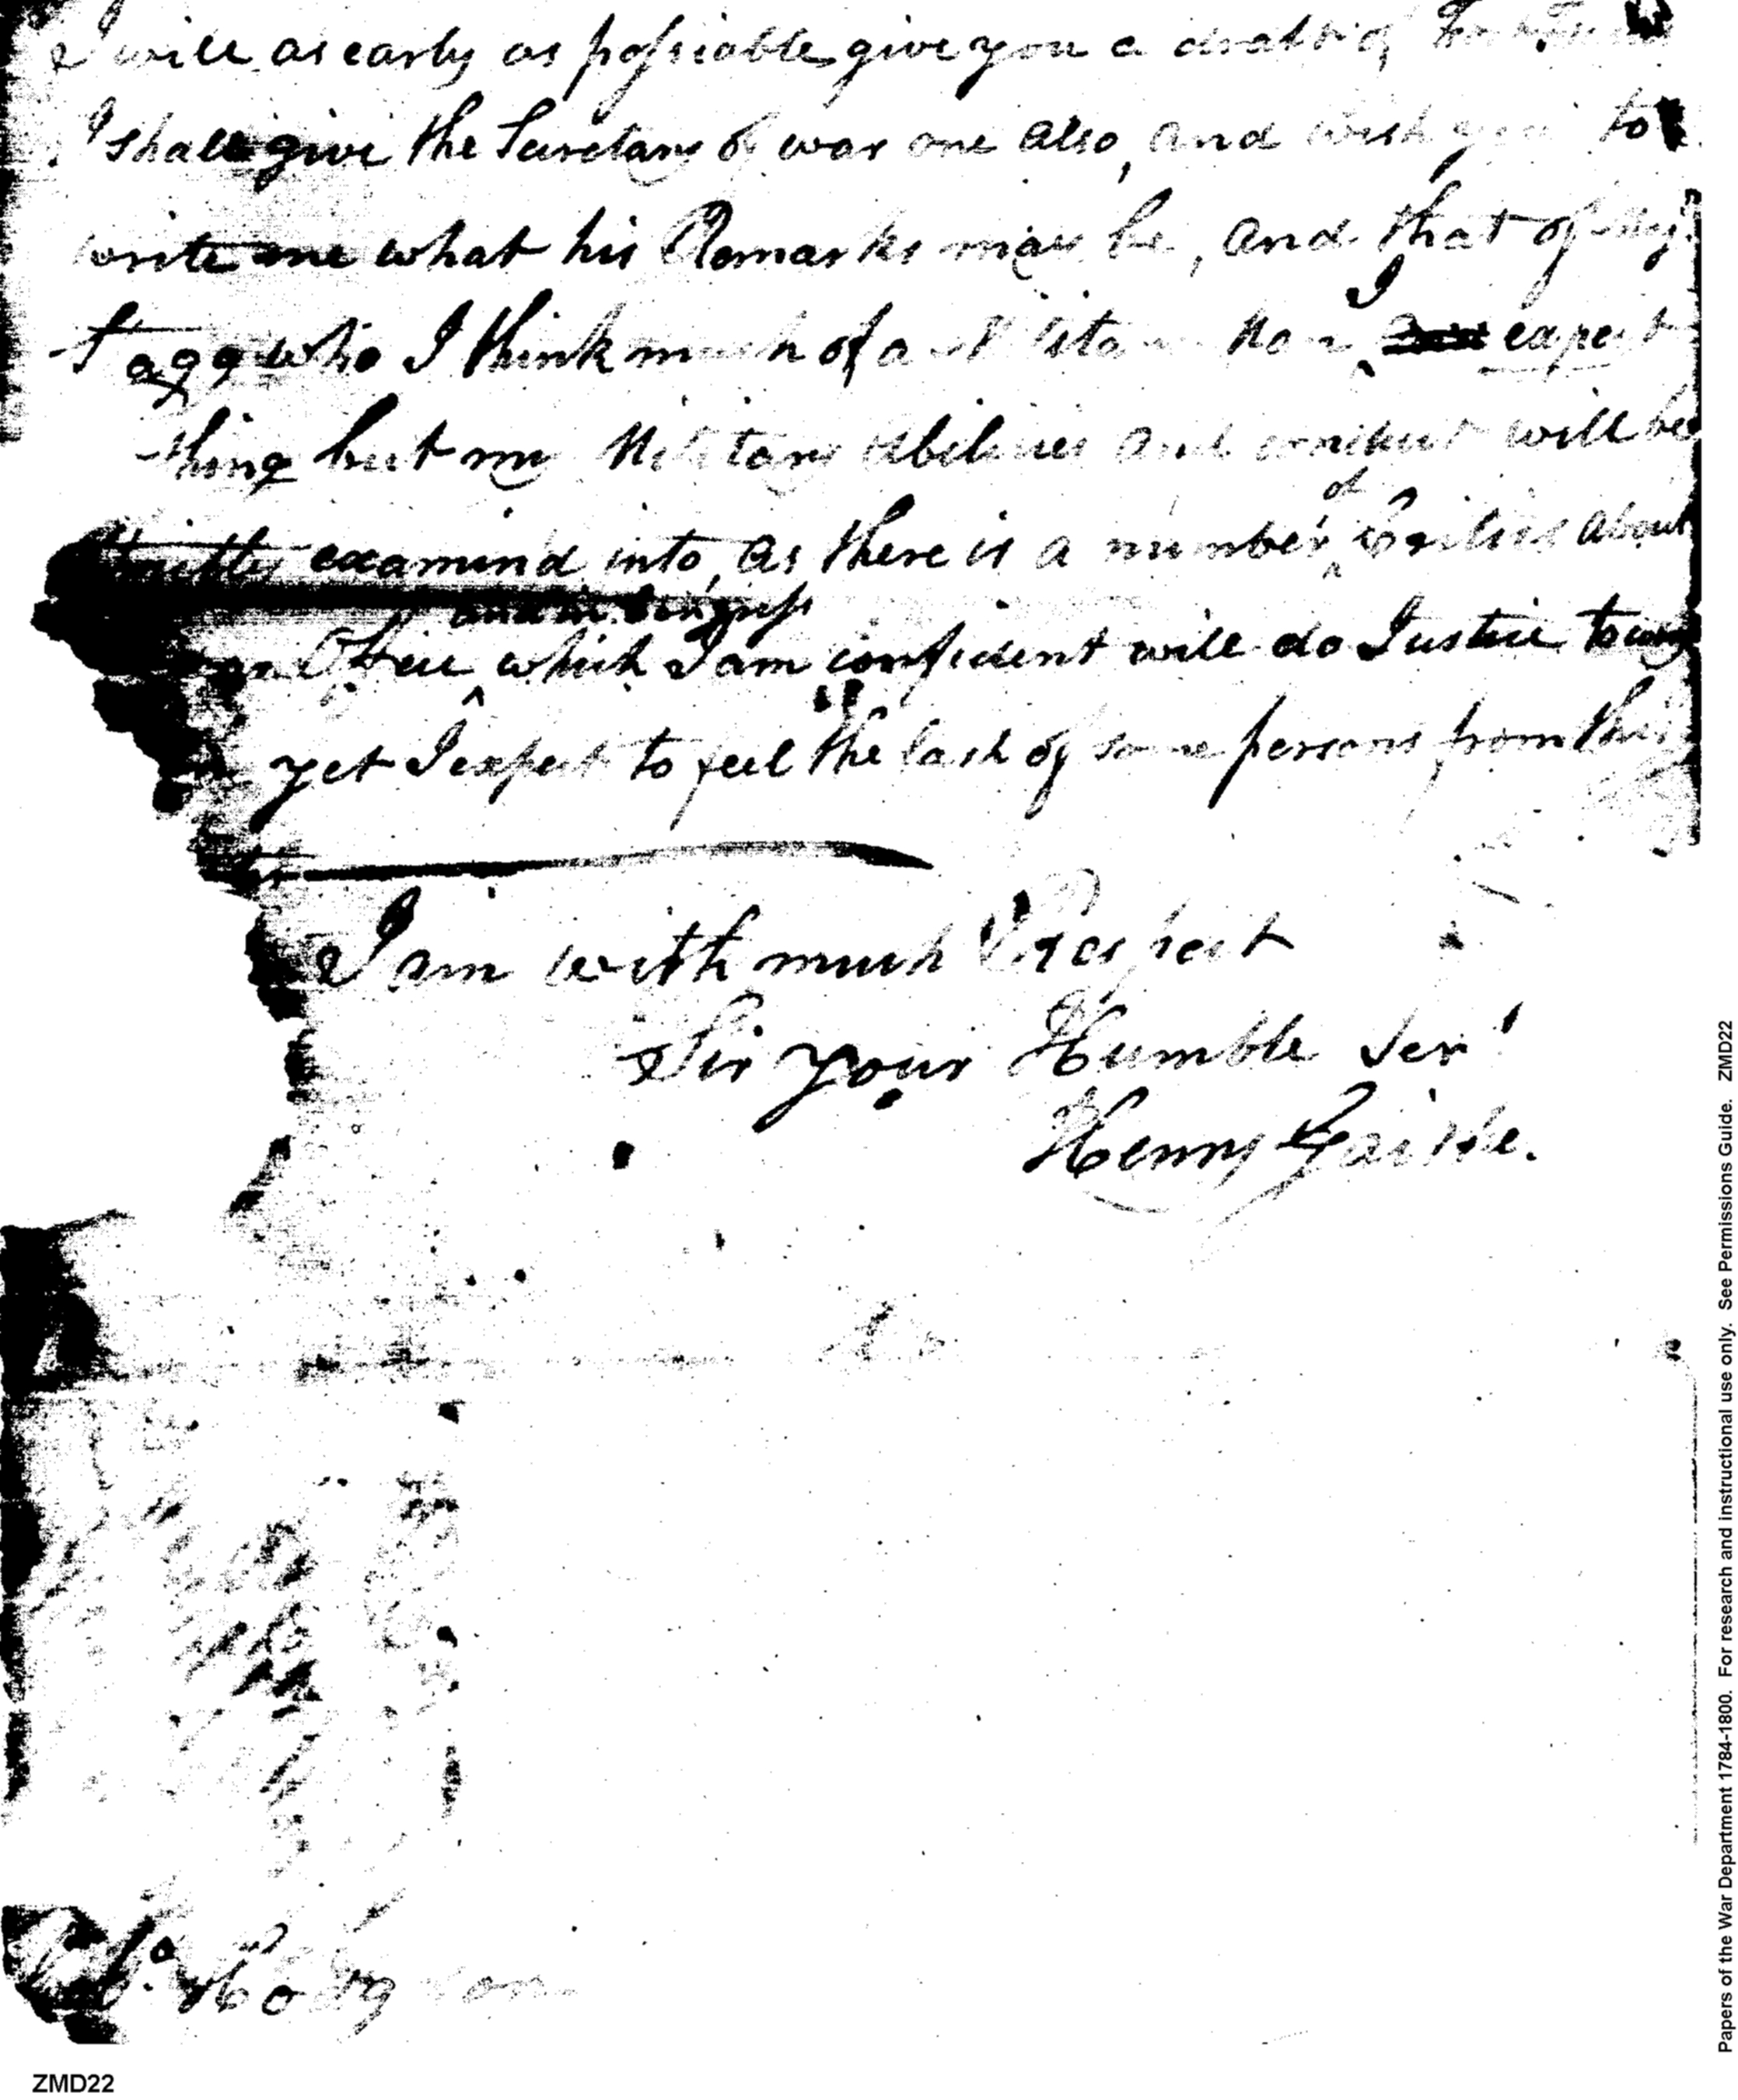 I will as early as possiable give you a draft of
I shall give the Secretary of war one also, and wish you to
write me what his Remarks may be, and that of
Tagg who I think much of a Military Man, I expect
thing but my Military abilities and conduct will be
strictly examind into, as there is a number of Critics about
and in Congress
Office which I am confident will do Justice to
yet I expect to feel the lash of some persons from this
I am with much Respect
Sir your Humble Sert
Henry Gaither.
Hodgson
ZMD22
Papers of the War Department 1784-1800. For research and instructional use only. See Permissions Guide. ZMD22